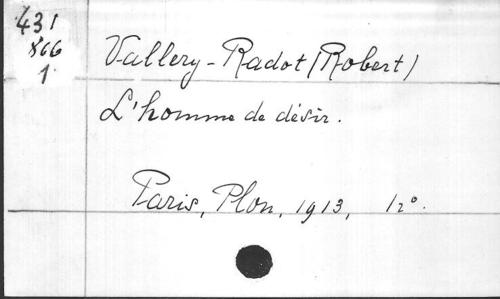 431
866
1
Vallery-Radot (Robert)
L'homme de désir.
Paris, Plon, 1913, 12°.